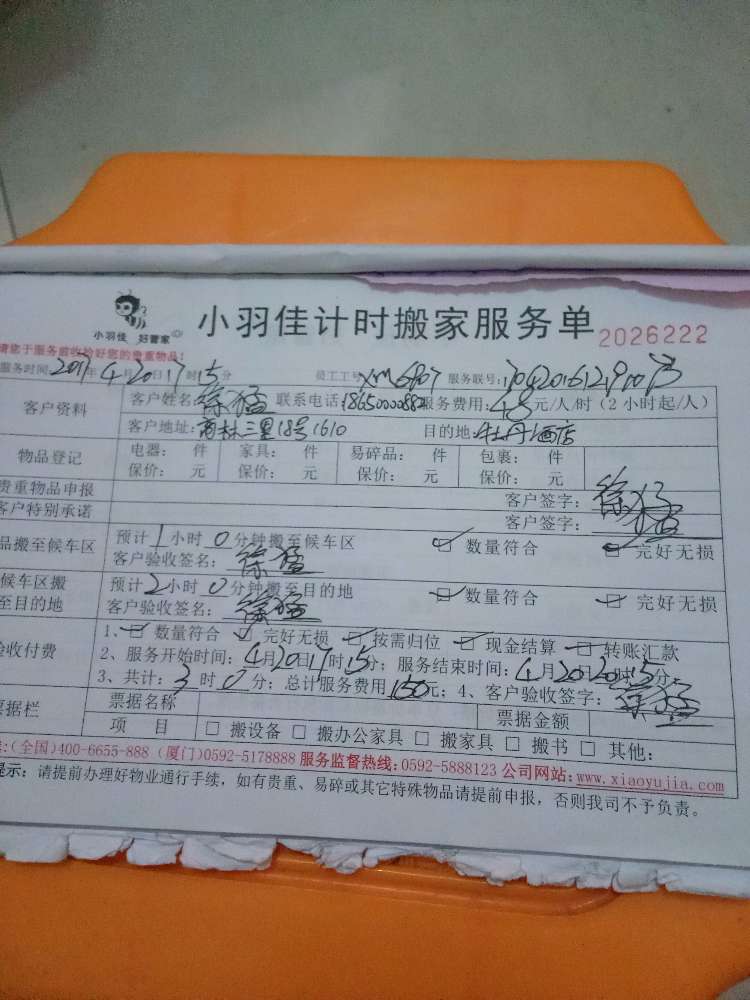 小羽佳 好管家
小羽佳计时搬家服务单 2026222
请您于服务前收拾好您的贵重物品!
服务时间:2017年4月20日17时15分 员工工号 xm6907 服务联号:
客户资料 客户姓名:徐猛 联系电话 服务费用:48元/人/时(2小时起/人)
客户地址: 三里18号1610 目的地:牡丹酒店
物品登记 电器: 件 家具: 件 易碎品: 件 包裹: 件
保价: 元 保价: 元 保价: 元 保价: 元
贵重物品申报 客户签字:徐猛
客户特别承诺 客户签字:
品搬至候车区 预计1小时0分钟搬至候车区 ☑ 数量符合 ☑ 完好无损
客户验收签名:徐猛
候车区搬 预计2小时0分钟搬至目的地 ☑ 数量符合 ☑ 完好无损
至目的地 客户验收签名:徐猛
验收付费 1、☑ 数量符合 ☑ 完好无损 ☑ 按需归位 ☑ 现金结算 ☑ 转账汇款
2、服务开始时间:4月20日17时15分;服务结束时间:4月20日20时15分
3、共计:3时0分;总计服务费用150元;4、客户验收签字:徐猛
票据栏 票据名称 票据金额
项 目 □ 搬设备 □ 搬办公家具 □ 搬家具 □ 搬书 □ 其他:
:(全国)400-6655-888 (厦门)0592-5178888 服务监督热线:0592-5888123 公司网站:www.xiaoyujia.com
提示:请提前办理好物业通行手续,如有贵重、易碎或其它特殊物品请提前申报,否则我司不予负责。